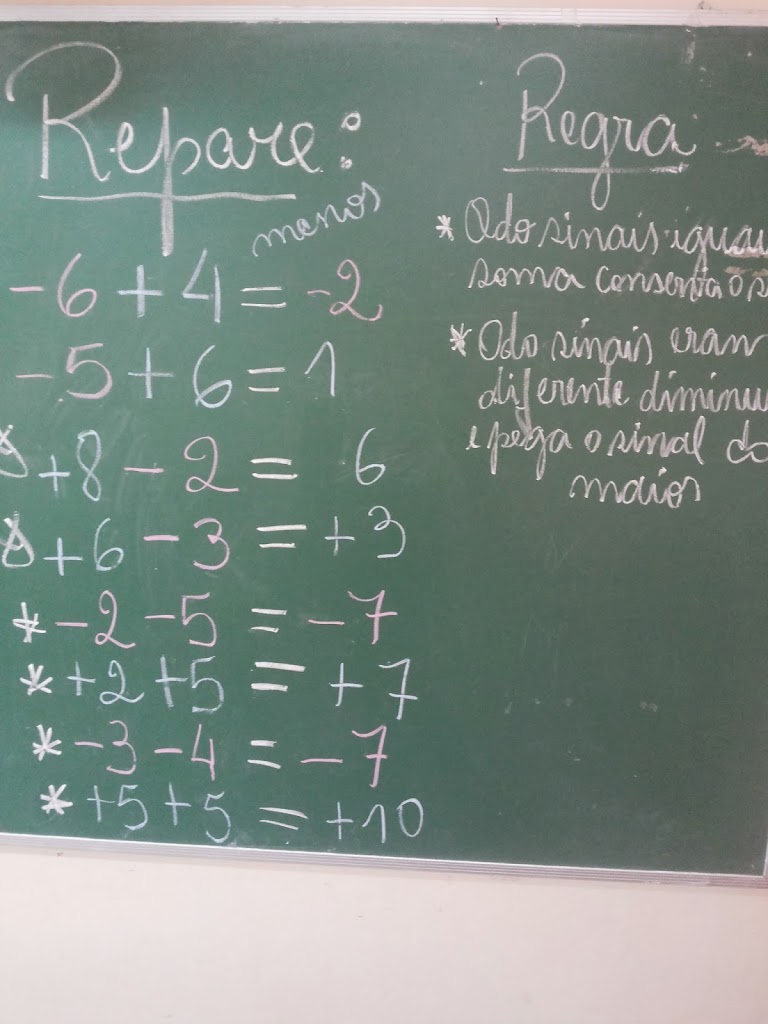 Repare:
menos
-6 + 4 = -2
-5 + 6 = 1
+8 - 2 = 6
+6 - 3 = +3
* -2 -5 = -7
* +2 +5 = +7
* -3 -4 = -7
* +5 +5 = +10
Regra
* Qdo sinais iguai
soma conserva o s
* Qdo sinais
diferente diminu
e pega o sinal do
maior